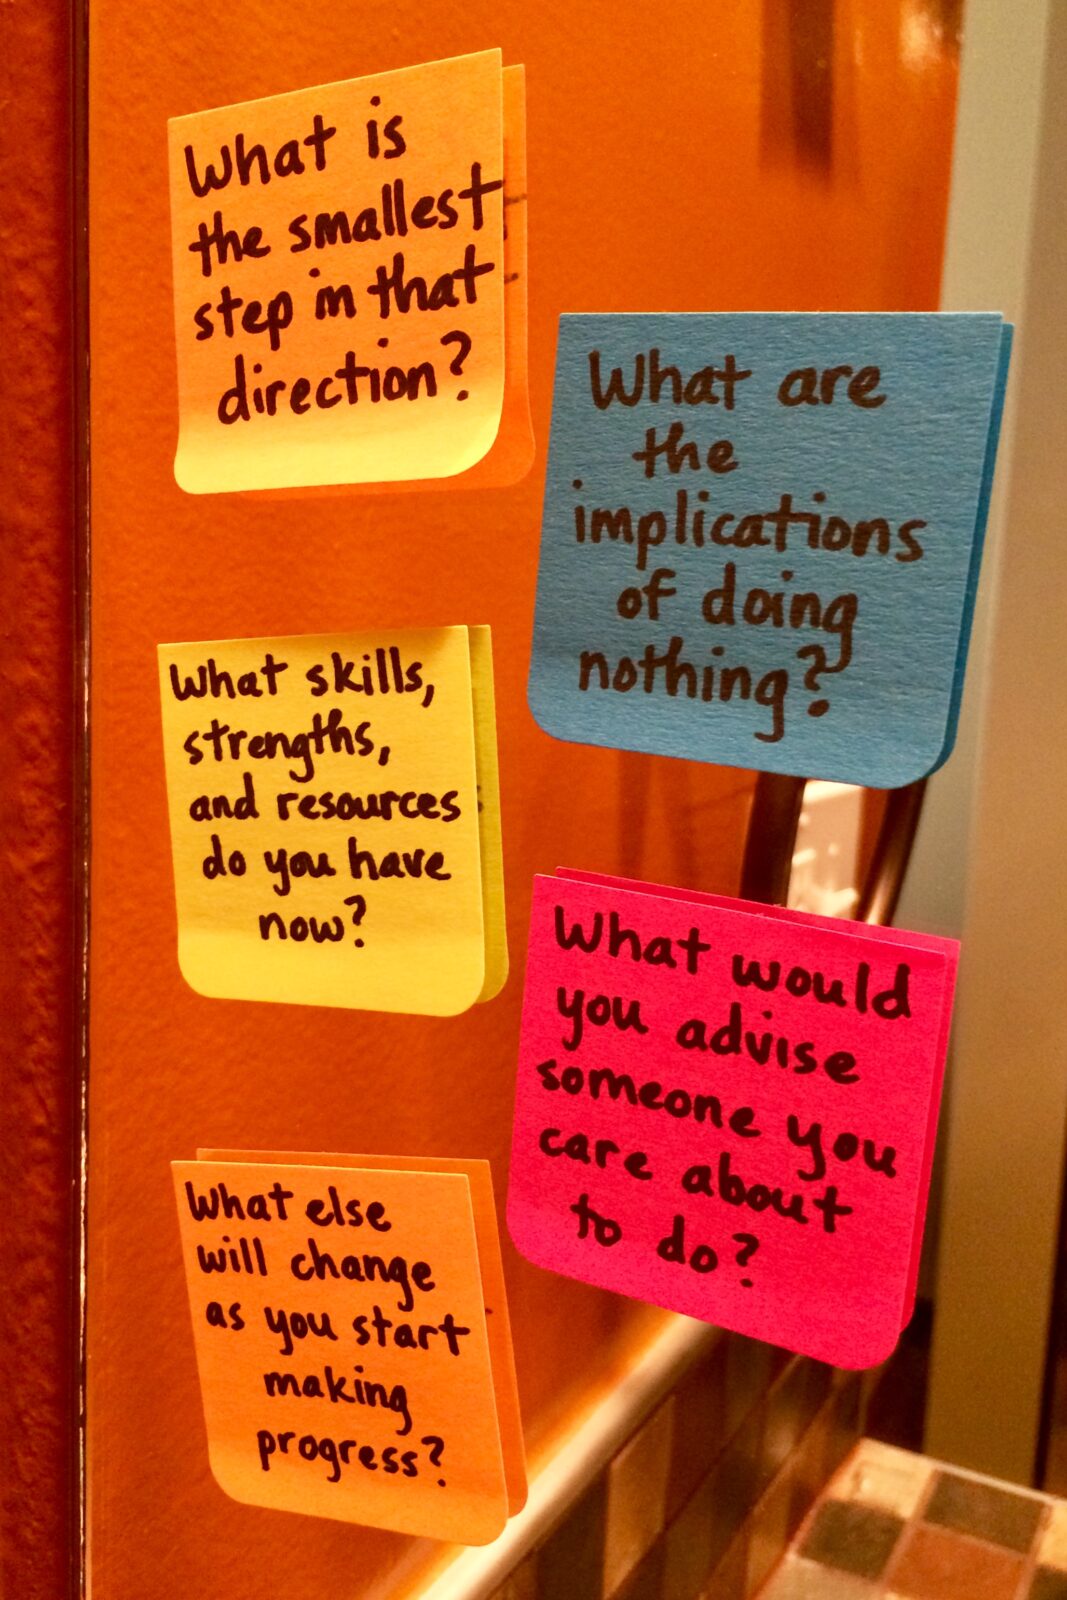 What is
the smallest
step in that
direction?
What are
the
implications
of doing
nothing?
What skills,
strengths,
and resources
do you have
now?
What would
you advise
someone you
care about
to do?
What else
will change
as you start
making
progress?